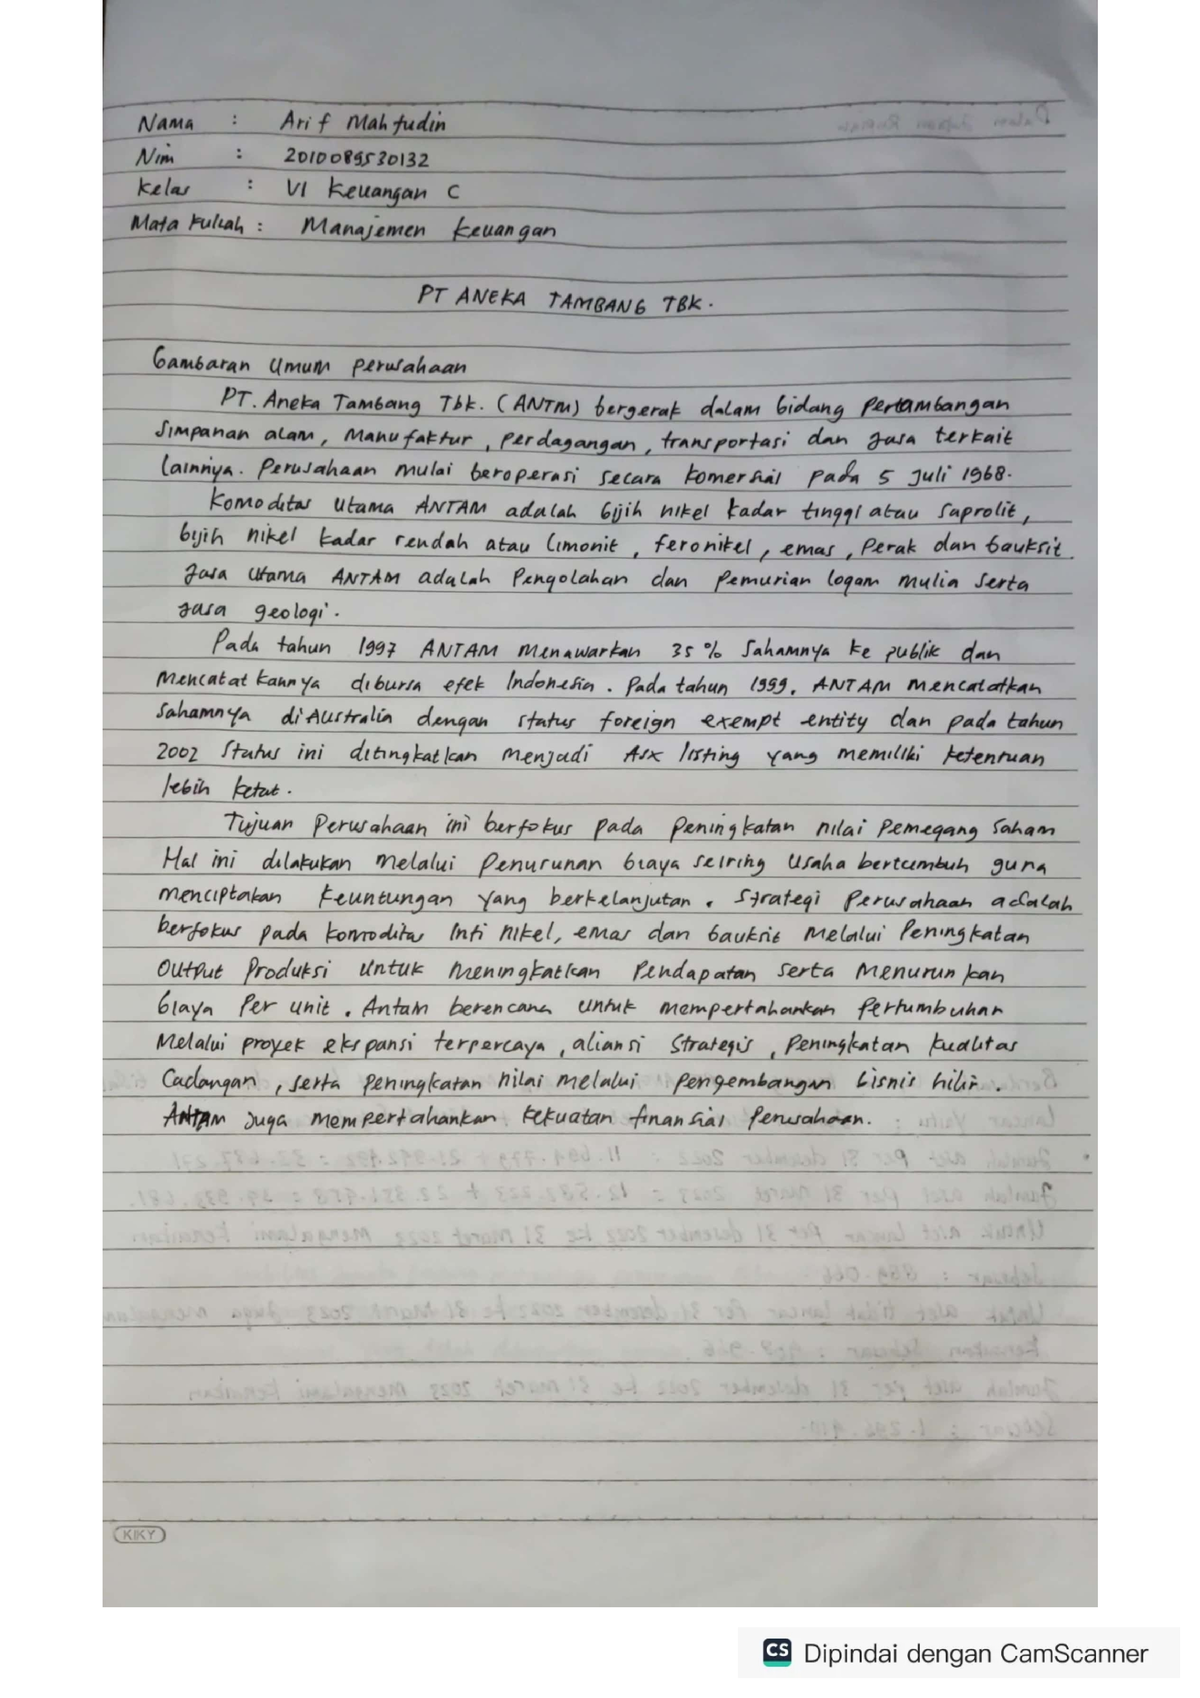 Nama : Arif Mahfudin
Nim : 2010089530132
Kelas : VI Keuangan C
Mata Kuliah : Manajemen Keuangan
PT ANEKA TAMBANG TBK.
Gambaran Umum Perusahaan
PT. Aneka Tambang Tbk. (ANTM) bergerak dalam bidang Pertambangan
Simpanan alam, Manufaktur, Perdagangan, transportasi dan jasa terkait
lainnya. Perusahaan mulai beroperasi secara komersial pada 5 Juli 1968.
Komoditas utama ANTAM adalah bijih nikel kadar tinggi atau Saprolit,
bijih nikel kadar rendah atau limonit, feronikel, emas, Perak dan bauksit.
Jasa Utama ANTAM adalah Pengolahan dan Pemurian logam mulia Serta
jasa geologi.
Pada tahun 1997 ANTAM Menawarkan 35 % Sahamnya ke publik dan
Mencatatkannya dibursa efek Indonesia. Pada tahun 1999, ANTAM mencatatkan
Sahamnya di Australia dengan status foreign exempt entity dan pada tahun
2002 Status ini ditingkatkan menjadi ASX listing yang memiliki ketentuan
lebih ketat.
Tujuan Perusahaan ini berfokus pada peningkatan nilai Pemegang Saham
Hal ini dilakukan melalui Penurunan biaya seiring Usaha bertumbuh guna
menciptakan keuntungan yang berkelanjutan. Strategi Perusahaan adalah
berfokus pada komoditas Inti nikel, emas dan bauksit Melalui Peningkatan
Output Produksi Untuk Meningkatkan Pendapatan serta Menurunkan
biaya Per unit. Antam berencana untuk mempertahankan Pertumbuhan
Melalui proyek ekspansi terpercaya, aliansi Strategis, Peningkatan Kualitas
Cadangan, serta peningkatan nilai melalui pengembangan bisnis hilir.
ANTAM Juga mempertahankan kekuatan finansial Perusahaan.
KIKY
CS Dipindai dengan CamScanner